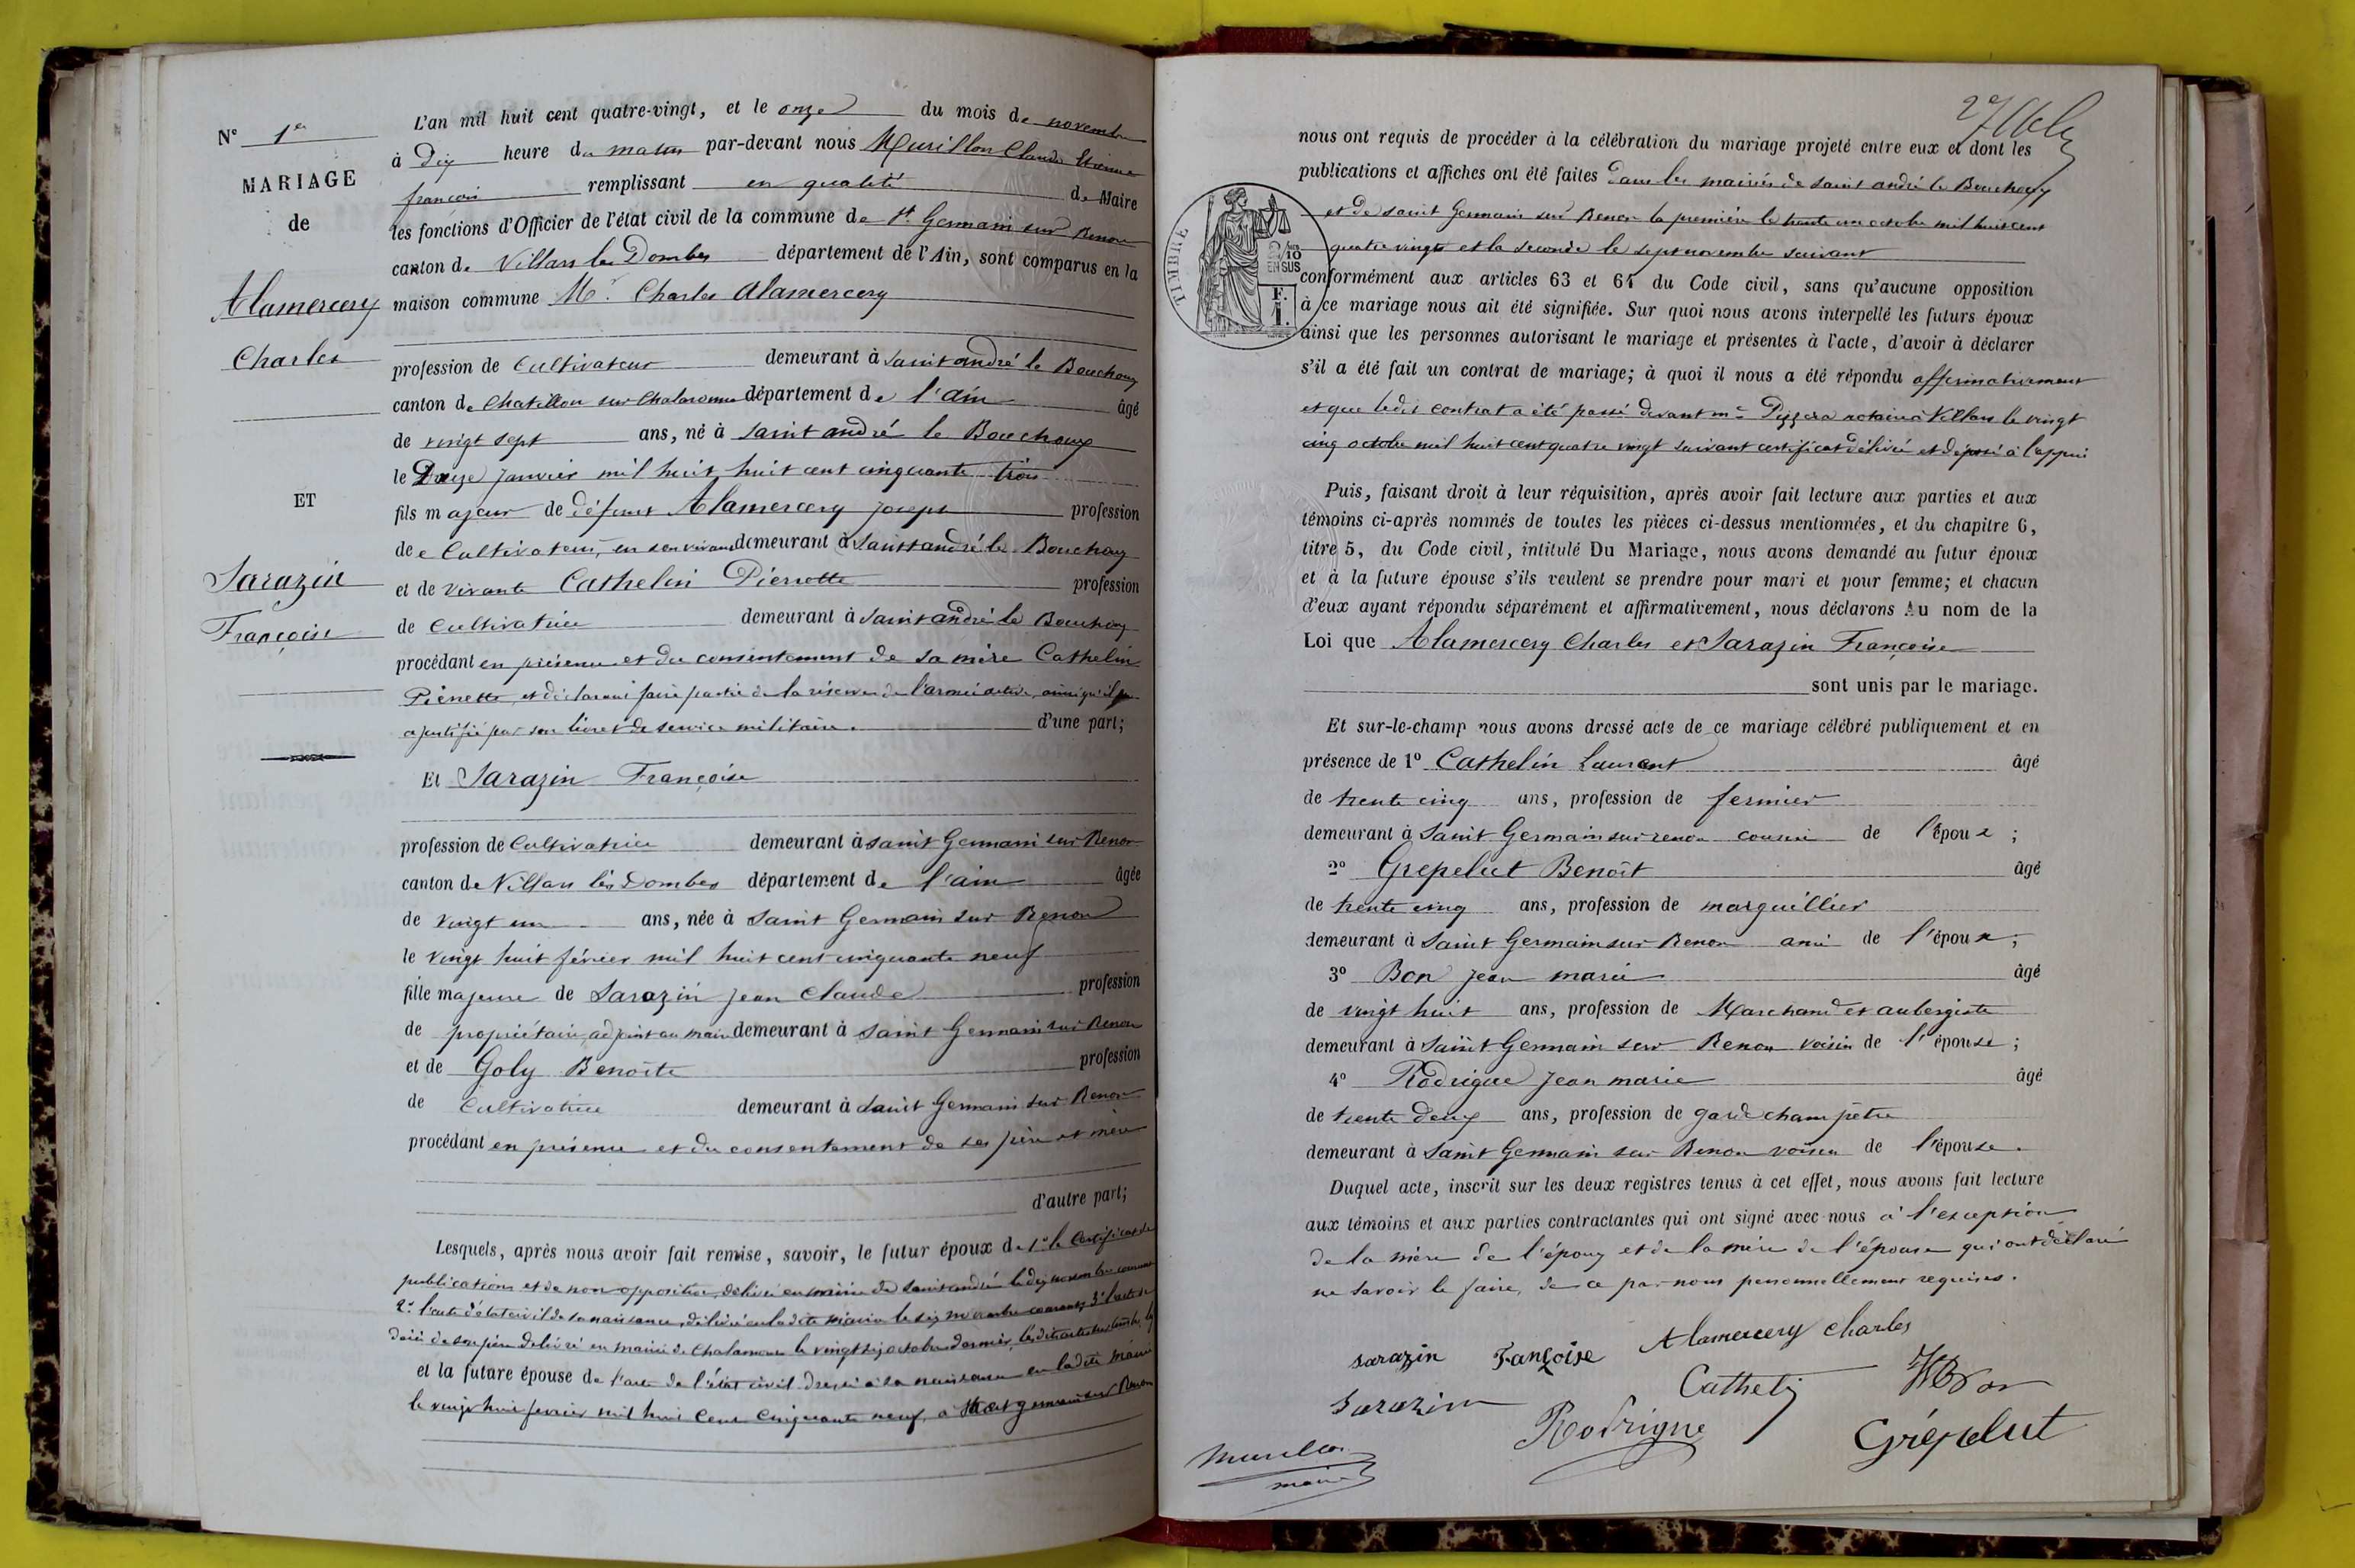 N° 1er
MARIAGE
de
Alamercery
Charles
ET
Sarazin
Françoise
L'an mil huit cent quatre-vingt, et le onze du mois de novembre
à Dix heure du matin par-devant nous Murillon Claude Etienne
françois remplissant en qualité de Maire
les fonctions d'Officier de l'état civil de la commune de St. Germain sur Renon
canton de Villars les Dombes département de l'Ain, sont comparus en la
maison commune Mr. Charles Alamercery
profession de Cultivateur demeurant à Saint andré le Bouchoux
canton de Chatillon sur Chalaronne département de l'ain âgé
de vingt sept ans, né à Saint andré le Bouchoux
le Douze janvier mil huit huit cent cinquante trois
fils majeur de défunt Alamercery joseph profession
de Cultivateur, en son vivant demeurant à Saint andré le Bouchoux
et de vivante Cathelin Pierrette profession
de Cultivatrice demeurant à Saint andré le Bouchoux
procédant en présence et du consentement de sa mère Cathelin
Pierrette et déclarant faire partie de la réserve de l'armée active, ainsi qu'il
a justifié par son livret de service militaire. d'une part;
Et Sarazin Françoise
profession de Cultivatrice demeurant à saint Germain sur Renon
canton de Villars les Dombes département de l'ain âgée
de vingt un ans, née à Saint Germain sur Renon
le vingt huit février mil huit cent cinquante neuf
fille majeure de Sarazin Jean Claude profession
de propriétaire, adjoint au maire demeurant à saint Germain sur Renon
et de Goly Benoîte profession
de Cultivatrice demeurant à Saint Germain sur Renon
procédant en présence et du consentement de ses père et mère
d'autre part;
Lesquels, après nous avoir fait remise, savoir, le futur époux de 1° le Certificat de
publications et de non opposition, délivré en mairie de Saint andré le dix novembre courant
2° l'acte d'état civil de sa naissance, délivré en ladite mairie le six novembre courant, 3° l'acte de
décès de son père délivré en mairie de Chalamont le vingt six octobre dernier,
et la future épouse de l'acte de l'état civil dressé à sa naissance en ladite mairie
le vingt huit fevrier mil huit cent cinquante neuf, a Saint germain sur Renon
nous ont requis de procéder à la célébration du mariage projeté entre eux et dont les
publications et affiches ont été faites Dans les mairies de Saint andré le Bouchoux
et de saint Germain sur Renon la première le trente un octobre mil huit cent
quatre vingts et la seconde le sept novembre suivant
TIMBRE
2/10
EN SUS
F.
1.
conformément aux articles 63 et 64 du Code civil, sans qu'aucune opposition
à ce mariage nous ait été signifiée. Sur quoi nous avons interpellé les futurs époux
ainsi que les personnes autorisant le mariage et présentes à l'acte, d'avoir à déclarer
s'il a été fait un contrat de mariage; à quoi il nous a été répondu affirmativement
et que ledit contrat a été passé devant me notaire à Villars le vingt
cinq octobre mil huit cent quatre vingt suivant certificat délivré et déposé à l'appui
Puis, faisant droit à leur réquisition, après avoir fait lecture aux parties et aux
témoins ci-après nommés de toutes les pièces ci-dessus mentionnées, et du chapitre 6,
titre 5, du Code civil, intitulé Du Mariage, nous avons demandé au futur époux
et à la future épouse s'ils veulent se prendre pour mari et pour femme; et chacun
d'eux ayant répondu séparément et affirmativement, nous déclarons Au nom de la
Loi que Alamercery Charles et Sarazin Françoise
sont unis par le mariage.
Et sur-le-champ nous avons dressé acte de ce mariage célébré publiquement et en
présence de 1° Cathelin Laurent âgé
de trente cinq ans, profession de fermier
demeurant à Saint Germain sur renon cousin de l'époux ;
2° Grepelut Benoît âgé
de trente cinq ans, profession de marguillier
demeurant à Saint Germain sur Renon ami de l'époux ;
3° Bon jean marie âgé
de vingt huit ans, profession de Marchand et aubergiste
demeurant à Saint Germain sur Renon voisin de l'épouse ;
4° Rodrigue Jean marie âgé
de trente deux ans, profession de garde champêtre
demeurant à Saint Germain sur Renon voisin de l'épouse.
Duquel acte, inscrit sur les deux registres tenus à cet effet, nous avons fait lecture
aux témoins et aux parties contractantes qui ont signé avec nous à l'exception
de la mère de l'époux et de la mère de l'épouse qui ont déclaré
ne savoir le faire, de ce par nous personnellement requises.
sarazin Françoise Alamercery Charles
Sarazin Cathelin
Rodrigue Grépelut
Murillon
maire